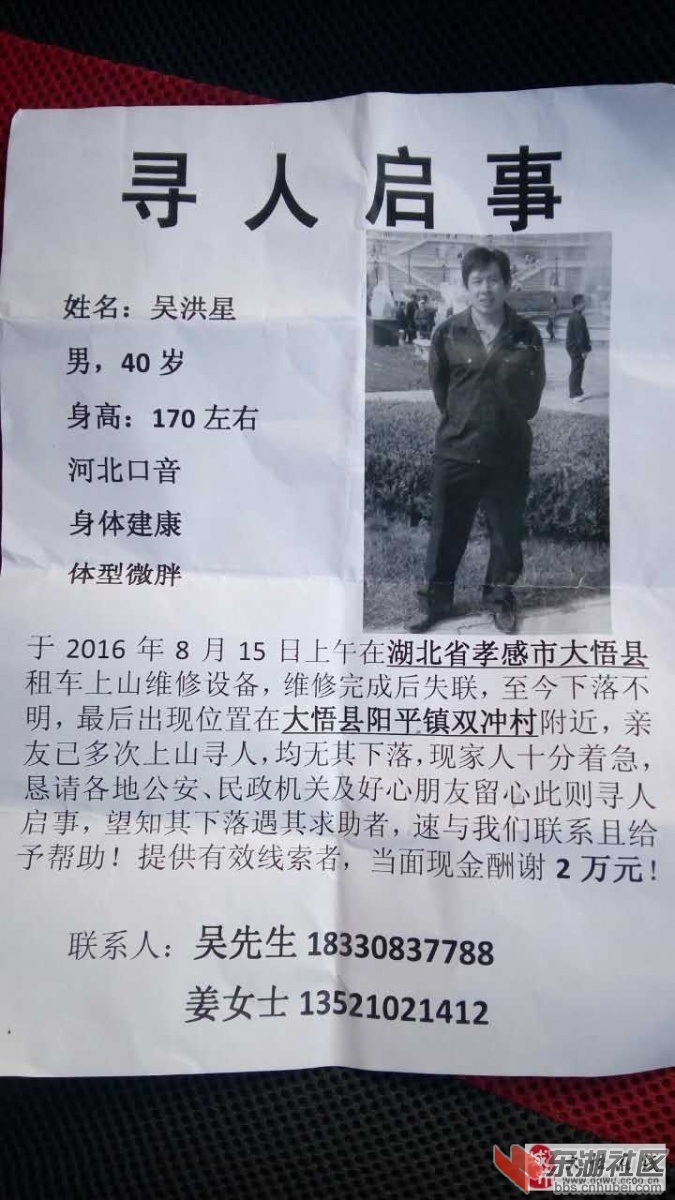 寻人启事
姓名：吴洪星
男，40岁
身高：170左右
河北口音
身体建康
体型微胖
于2016年8月15日上午在湖北省孝感市大悟县
租车上山维修设备，维修完成后失联，至今下落不
明，最后出现位置在大悟县阳平镇双冲村附近，亲
友已多次上山寻人，均无其下落，现家人十分着急，
恳请各地公安、民政机关及好心朋友留心此则寻人
启事，望知其下落遇其求助者，速与我们联系且给
予帮助！提供有效线索者，当面现金酬谢2万元！
联系人：吴先生 18330837788
姜女士 13521021412
东湖社区
bbs.cnhubei.com